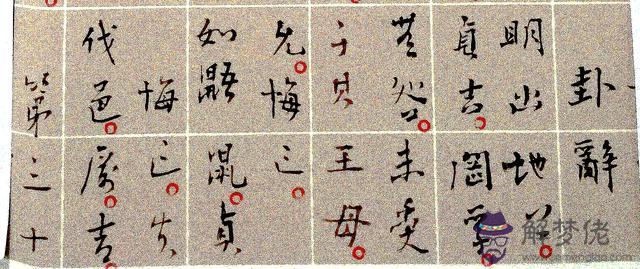 卦辭
明出地
貞吉罔
無咎未受
于其王母
允悔亡
如鼫鼠貞
悔亡失
伐邑厲吉
第三十
解梦佬